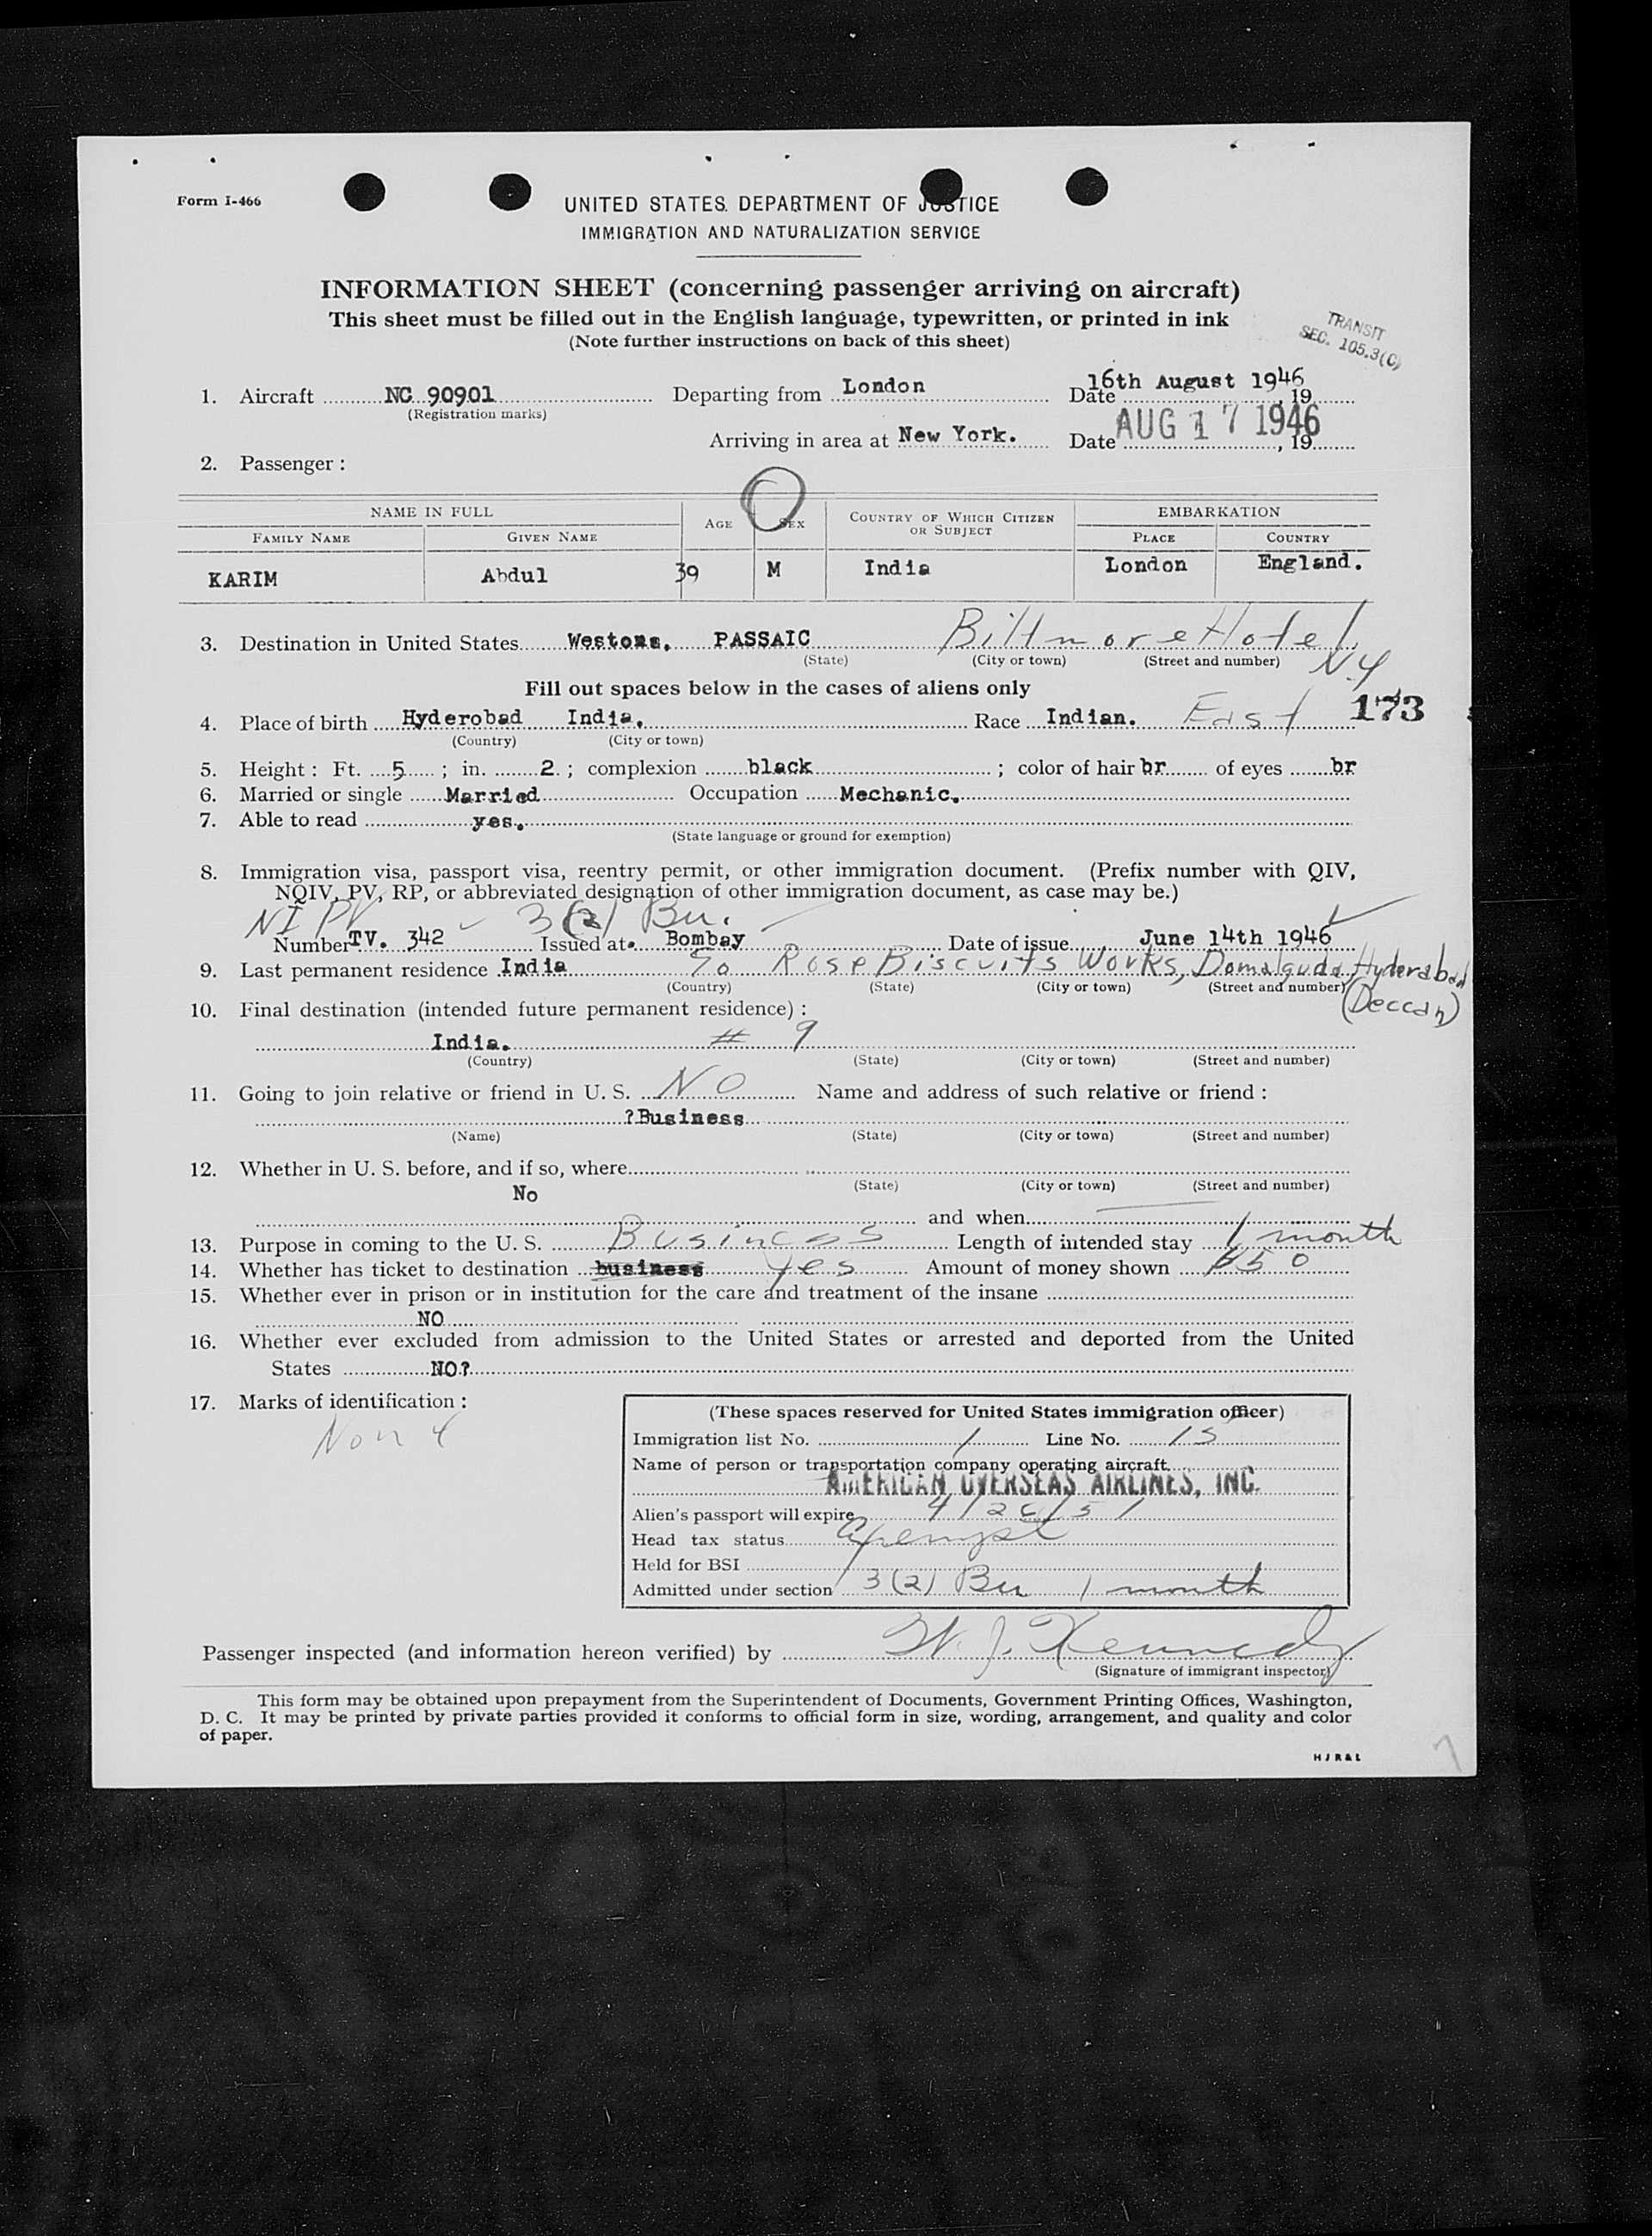 Form I-466
UNITED STATES DEPARTMENT OF JUSTICE
IMMIGRATION AND NATURALIZATION SERVICE
INFORMATION SHEET (concerning passenger arriving on aircraft)
This sheet must be filled out in the English language, typewritten, or printed in ink
(Note further instructions on back of this sheet)
TRANSIT
SEC. 105.3(C)
1. Aircraft NC 90901 Departing from London Date 16th August 1946, 19
(Registration marks)
Arriving in area at New York. Date AUG 17 1946, 19
2. Passenger:
NAME IN FULL AGE SEX COUNTRY OF WHICH CITIZEN OR SUBJECT EMBARKATION
FAMILY NAME GIVEN NAME PLACE COUNTRY
KARIM Abdul 39 M India London England.
3. Destination in United States Westons, PASSAIC Biltmore Hotel, NY
(State) (City or town) (Street and number)
Fill out spaces below in the cases of aliens only
173
4. Place of birth Hyderobad India. Race Indian. East
(Country) (City or town)
5. Height: Ft. 5; in. 2; complexion black; color of hair br of eyes br
6. Married or single Married Occupation Mechanic.
7. Able to read yes.
(State language or ground for exemption)
8. Immigration visa, passport visa, reentry permit, or other immigration document. (Prefix number with QIV,
NQIV, PV, RP, or abbreviated designation of other immigration document, as case may be.)
NI PV 3(2) Bu.
Number TV. 342 Issued at Bombay Date of issue June 14th 1946
9. Last permanent residence India Rose Biscuits Works, Domalguda, Hyderabad
(Country) (State) (City or town) (Street and number)
(Deccan)
10. Final destination (intended future permanent residence):
India. # 9
(Country) (State) (City or town) (Street and number)
11. Going to join relative or friend in U. S. NO Name and address of such relative or friend:
?Business
(Name) (State) (City or town) (Street and number)
12. Whether in U. S. before, and if so, where
No (State) (City or town) (Street and number)
and when
13. Purpose in coming to the U. S. Business Length of intended stay 1 month
14. Whether has ticket to destination business Yes Amount of money shown $50
15. Whether ever in prison or in institution for the care and treatment of the insane
NO
16. Whether ever excluded from admission to the United States or arrested and deported from the United
States NO?
17. Marks of identification:
(These spaces reserved for United States immigration officer)
Immigration list No. 1 Line No. 15
Name of person or transportation company operating aircraft
AMERICAN OVERSEAS AIRLINES, INC.
Alien's passport will expire 4/26/51
Head tax status Exempt
Held for BSI
Admitted under section 3(2) Bu 1 month
Passenger inspected (and information hereon verified) by W. J. Kennedy
(Signature of immigrant inspector)
This form may be obtained upon prepayment from the Superintendent of Documents, Government Printing Offices, Washington,
D. C. It may be printed by private parties provided it conforms to official form in size, wording, arrangement, and quality and color
of paper.
HJR&L
7